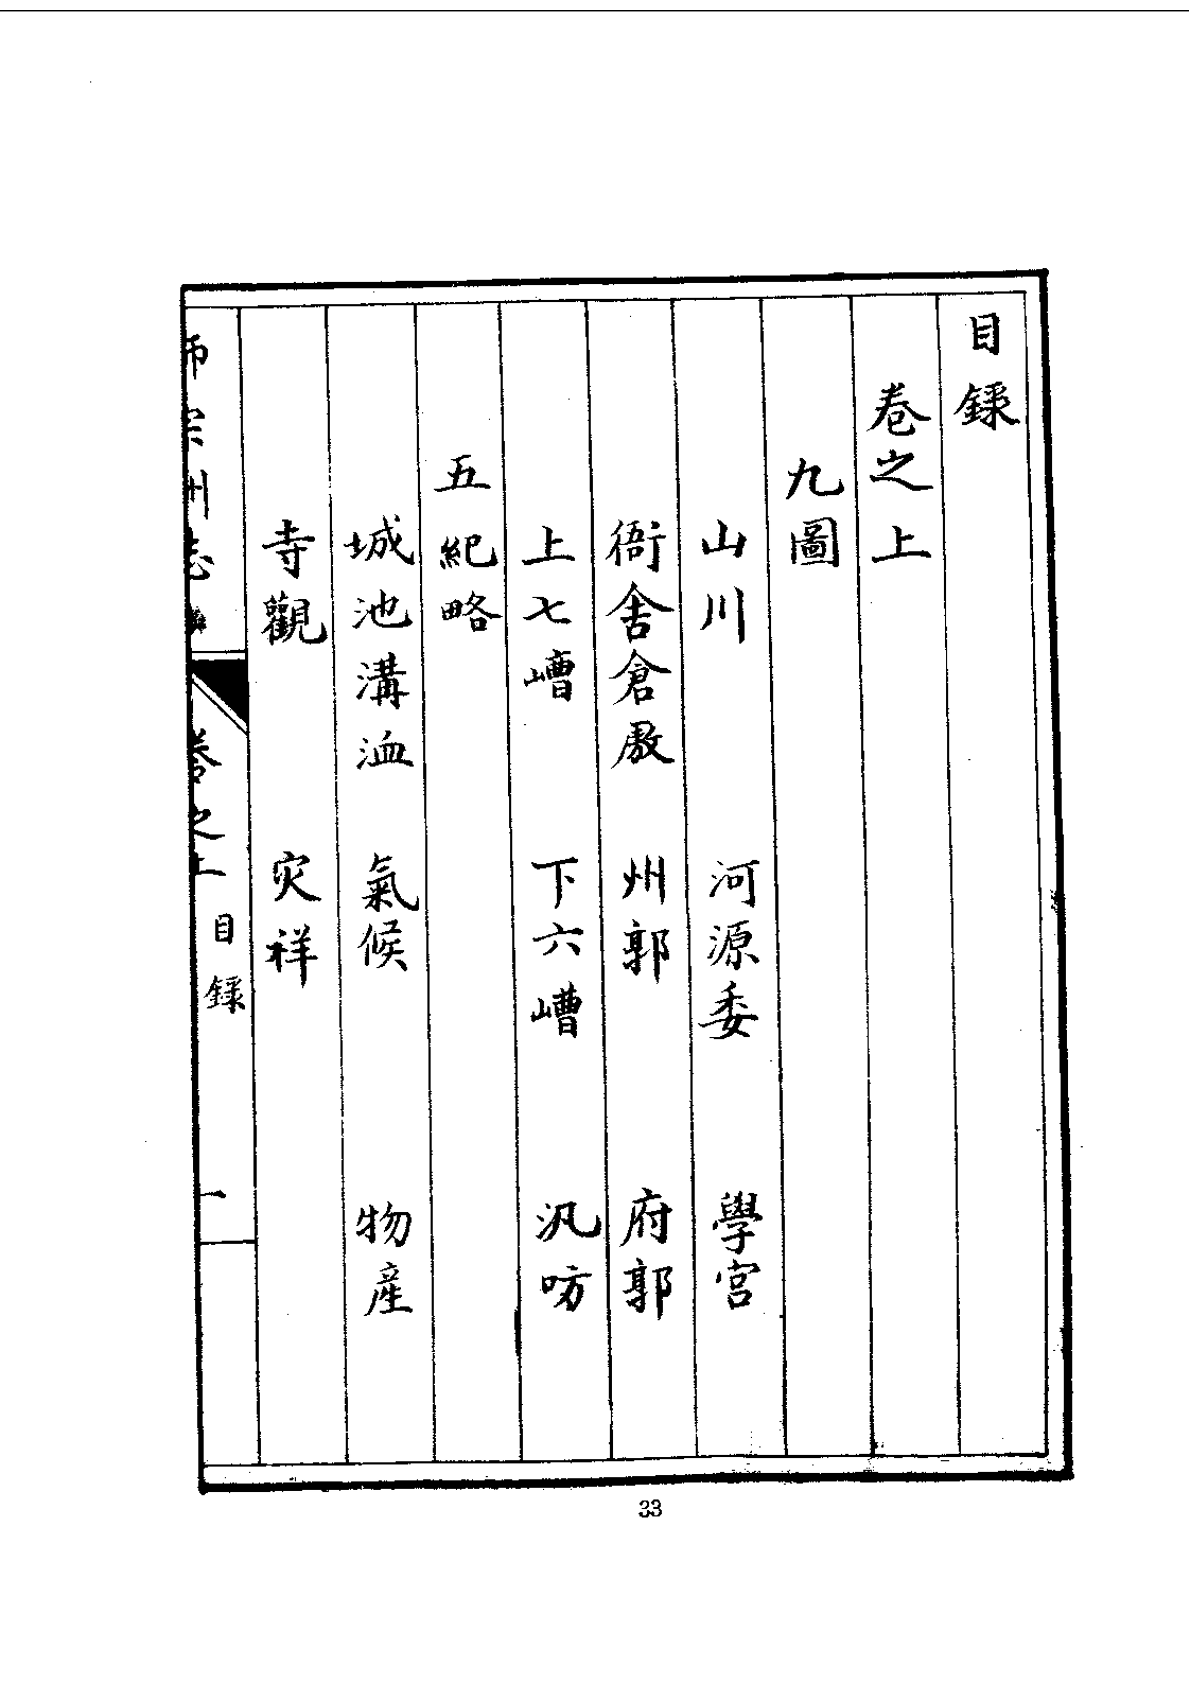 目錄
卷之上
九圖
山川 河源委 學宮
衙舍倉廒 州郭 府郭
上七嶆 下六嶆 汛昉
五紀略
城池溝洫 氣候 物產
寺觀 灾祥
師宗州志 卷之上 目錄 一
33